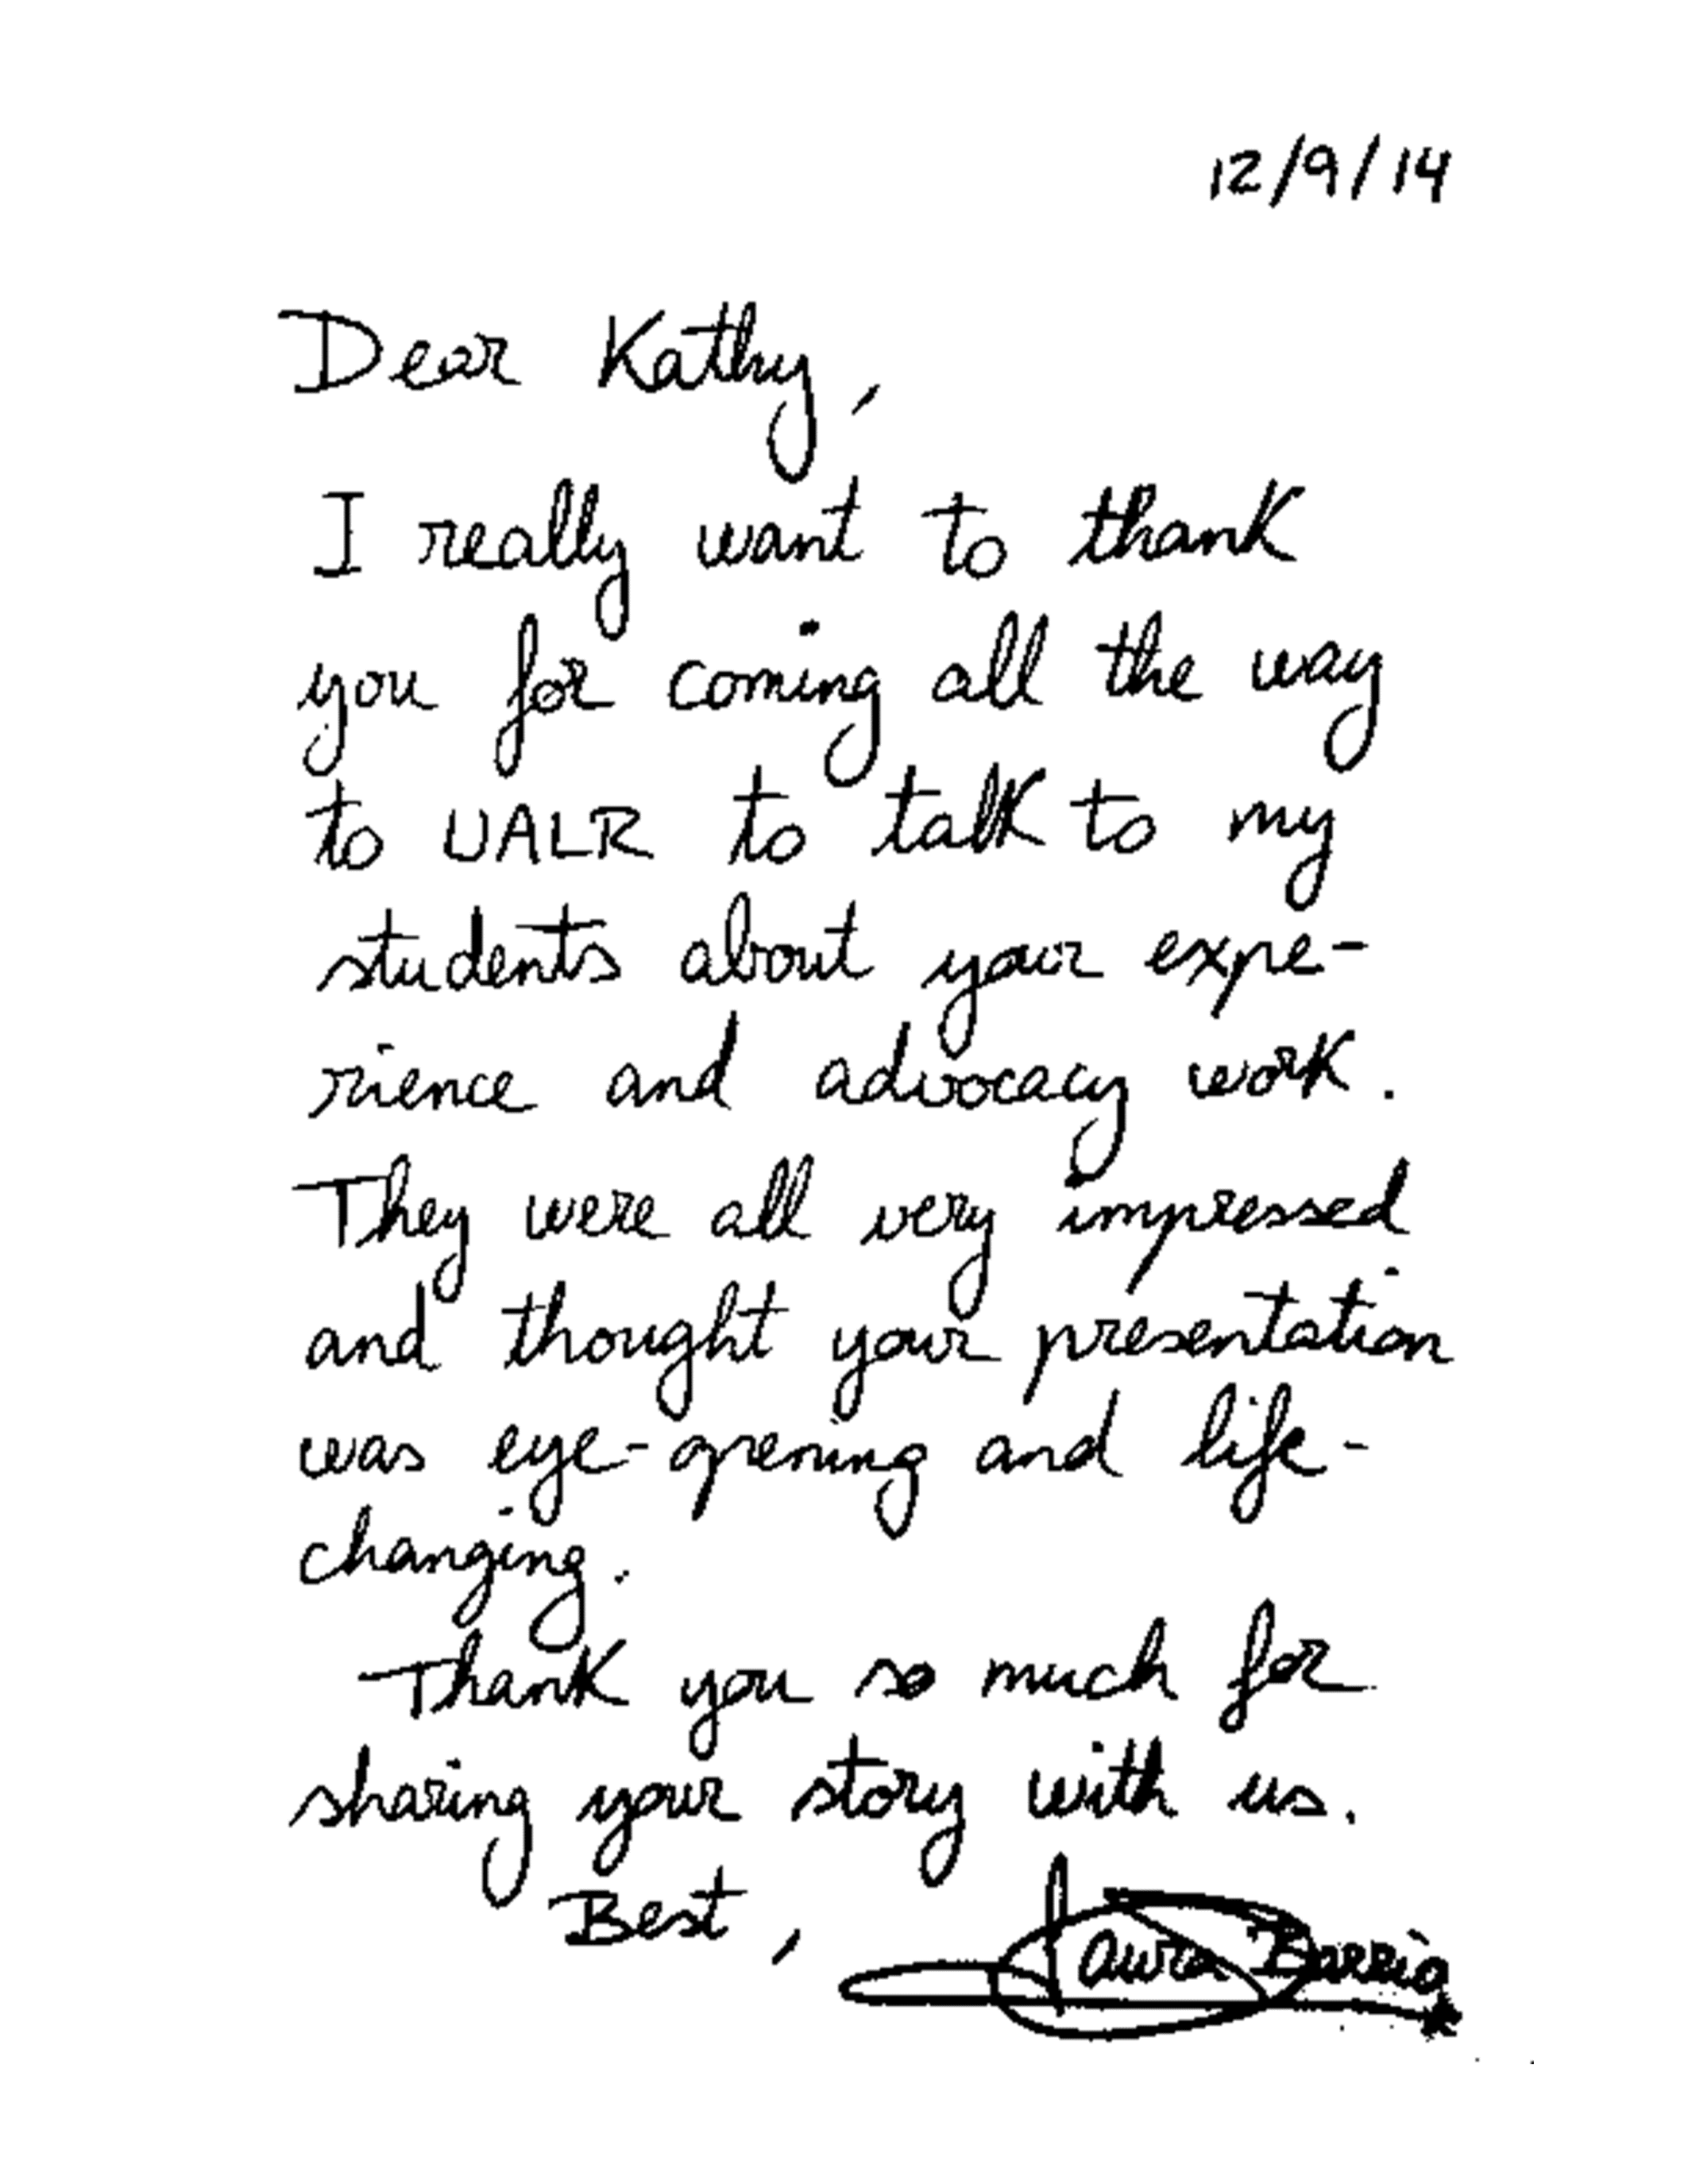 12/9/14
Dear Kathy,
I really want to thank
you for coming all the way
to UALR to talk to my
students about your expe-
rience and advocacy work.
They were all very impressed
and thought your presentation
was eye-opening and life-
changing.
Thank you so much for
sharing your story with us.
Best,
Laura Barrio